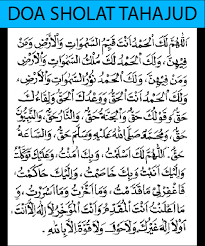 DOA SHOLAT TAHAJUD
اَللّٰهُمَّ لَكَ الْحَمْدُ اَنْتَ قَيِّمُ السَّمٰوَاتِ وَالْاَرْضِ وَمَنْ
فِيْهِنَّ، وَلَكَ الْحَمْدُ لَكَ مُلْكُ السَّمٰوَاتِ وَالْاَرْضِ
وَمَنْ فِيْهِنَّ، وَلَكَ الْحَمْدُ نُوْرُ السَّمٰوَاتِ وَالْاَرْضِ،
وَلَكَ الْحَمْدُ اَنْتَ الْحَقُّ وَوَعْدُكَ الْحَقُّ وَلِقَاءُكَ
حَقٌّ، وَقَوْلُكَ حَقٌّ، وَالْجَنَّةُ حَقٌّ، وَالنَّارُ حَقٌّ، وَالنَّبِيُّوْنَ
حَقٌّ، وَمُحَمَّدٌ صَلَّى اللهُ عَلَيْهِ وَسَلَّمَ حَقٌّ، وَالسَّاعَةُ
حَقٌّ، اَللّٰهُمَّ لَكَ اَسْلَمْتُ، وَبِكَ اٰمَنْتُ، وَعَلَيْكَ تَوَكَّلْتُ
وَاِلَيْكَ اَنَبْتُ، وَبِكَ خَاصَمْتُ، وَاِلَيْكَ حَاكَمْتُ،
فَاغْفِرْلِيْ مَاقَدَّمْتُ، وَمَا اَخَّرْتُ، وَمَا اَسْرَرْتُ، وَ
مَا اَعْلَنْتُ اَنْتَ الْمُقَدِّمُ وَاَنْتَ الْمُؤَخِّرُ لَا اِلٰهَ اِلَّا اَنْتَ،
اَوْ لَا اِلٰهَ غَيْرُكَ وَلَا حَوْلَ وَلَا قُوَّةَ اِلَّا بِاللهِ.